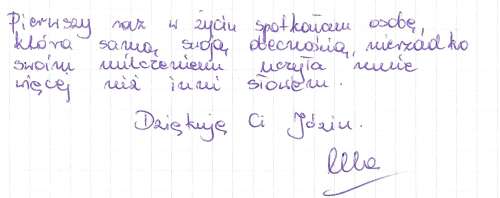 Pierwszy raz w życiu spotkałam osobę,
która samą swoją obecnością, nierzadko
swoim milczeniem uczyła mnie
więcej niż inni słowem.
Dziękuję Ci Józiu.